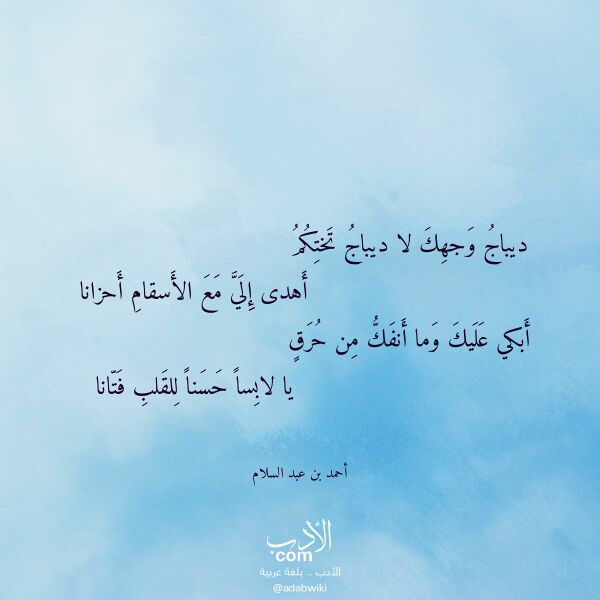 ديباجُ وَجهِكَ لا ديباجُ تَختِكُمُ
أَهدى إِلَيَّ مَعَ الأَسقامِ أَحزانا
أَبكي عَلَيكَ وَما أَنفَكُّ مِن حُرَقٍ
يا لابِساً حَسَناً لِلقَلبِ فَتّانا
أحمد بن عبد السلام
الأدب
com
الأدب .. بلغة عربية
@adabwiki